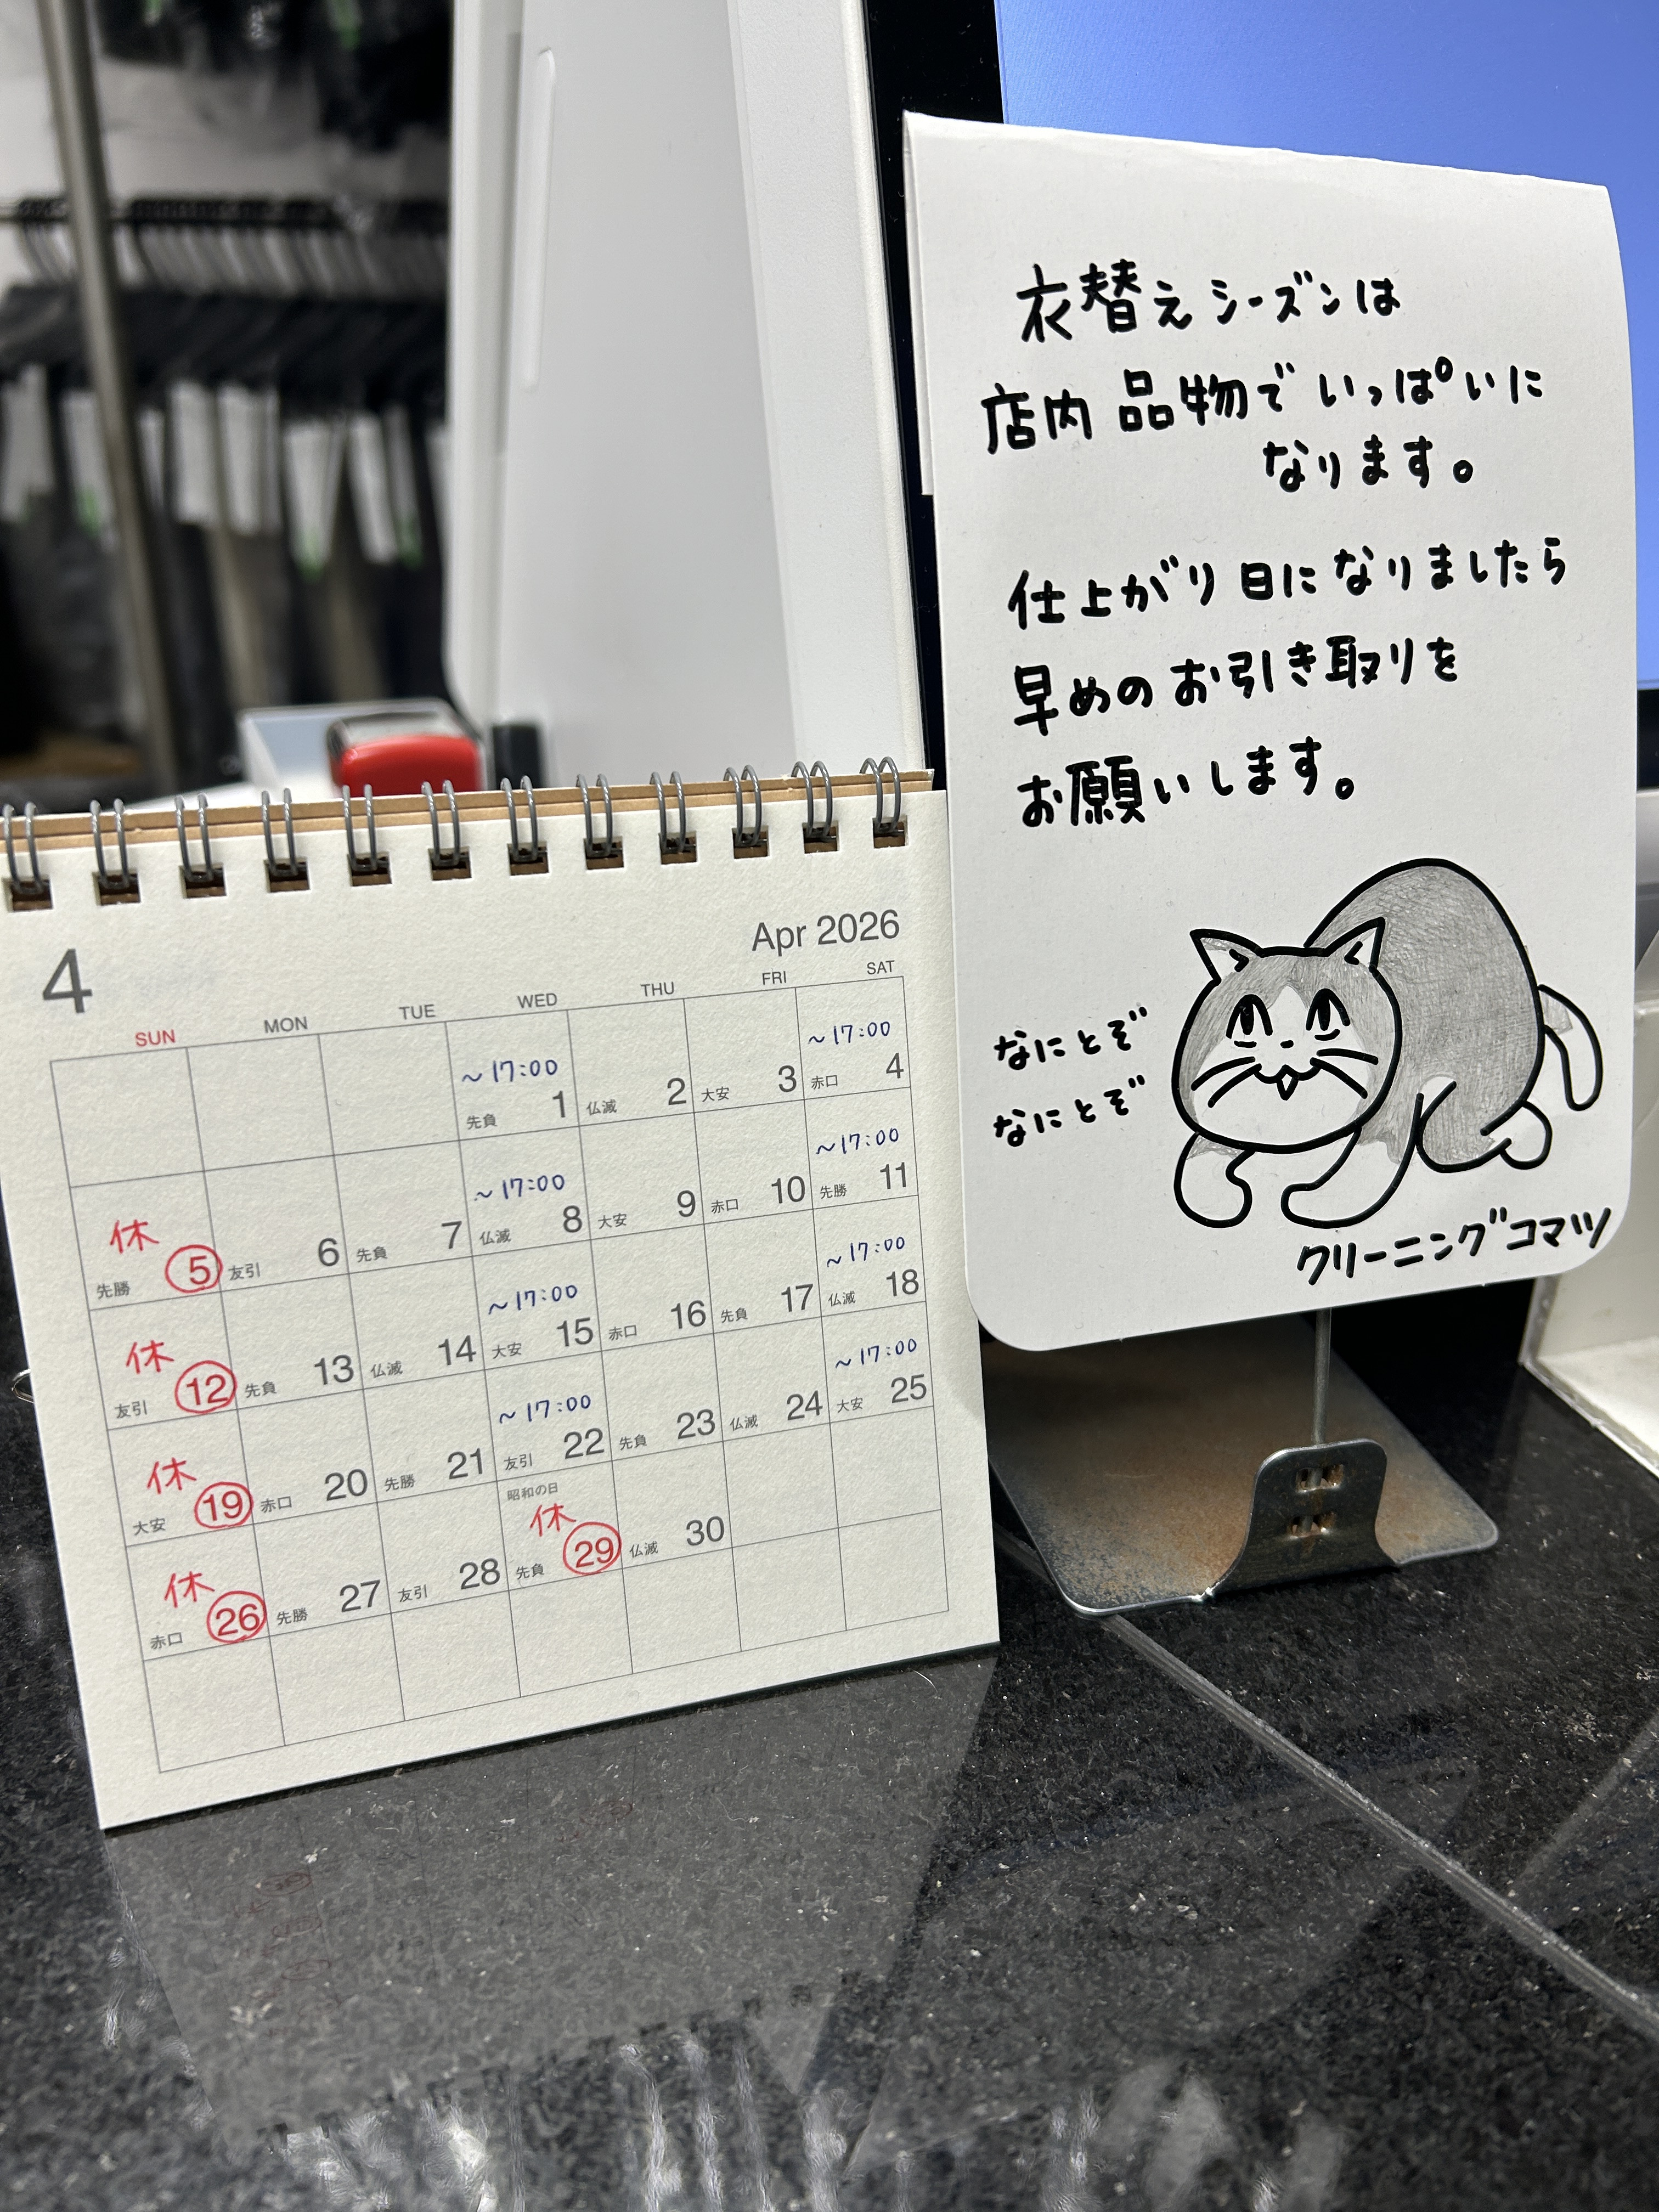 4
Apr 2026
SUN MON TUE WED THU FRI SAT
~17:00 ~17:00
先負 1 仏滅 2 大安 3 赤口 4
休 ~17:00 ~17:00
先勝 5 友引 6 先負 7 仏滅 8 大安 9 赤口 10 先勝 11
休 ~17:00 ~17:00
友引 12 先負 13 仏滅 14 大安 15 赤口 16 先負 17 仏滅 18
休 ~17:00 ~17:00
大安 19 赤口 20 先勝 21 友引 22 先負 23 仏滅 24 大安 25
昭和の日
休 休
赤口 26 先勝 27 友引 28 先負 29 仏滅 30
衣替えシーズンは
店内品物でいっぱいに
なります。
仕上がり日になりましたら
早めのお引き取りを
お願いします。
なにとぞ
なにとぞ
クリーニングコマツ